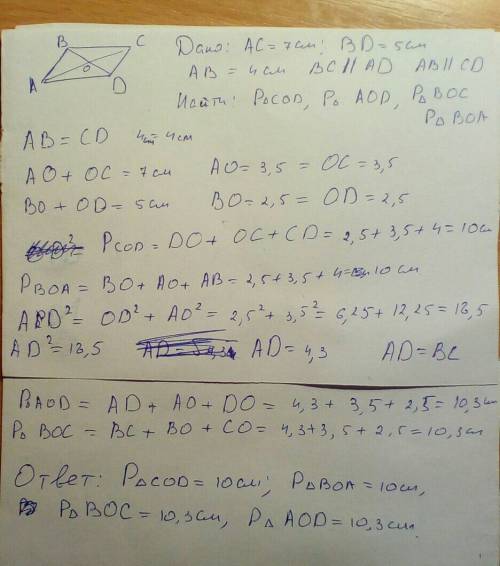 B C
A O D
Дано: AC = 7см; BD = 5см
AB = 4см BC || AD AB || CD
Найти: P△COD, P△ AOD, P△ BOC
P△ BOA
AB = CD 4см = 4см
AO + OC = 7см AO = 3,5 = OC = 3,5
BO + OD = 5см BO = 2,5 = OD = 2,5
PCOD = DO + OC + CD = 2,5 + 3,5 + 4 = 10см
PBOA = BO + AO + AB = 2,5 + 3,5 + 4 = 10см
AD² = OD² + AO² = 2,5² + 3,5² = 6,25 + 12,25 = 18,5
AD² = 18,5 AD = 4,3 AD = BC
PAOD = AD + AO + DO = 4,3 + 3,5 + 2,5 = 10,3см
P△ BOC = BC + BO + CO = 4,3 + 3,5 + 2,5 = 10,3см
Ответ: P△COD = 10см; P△BOA = 10см,
P△ BOC = 10,3см, P△ AOD = 10,3см